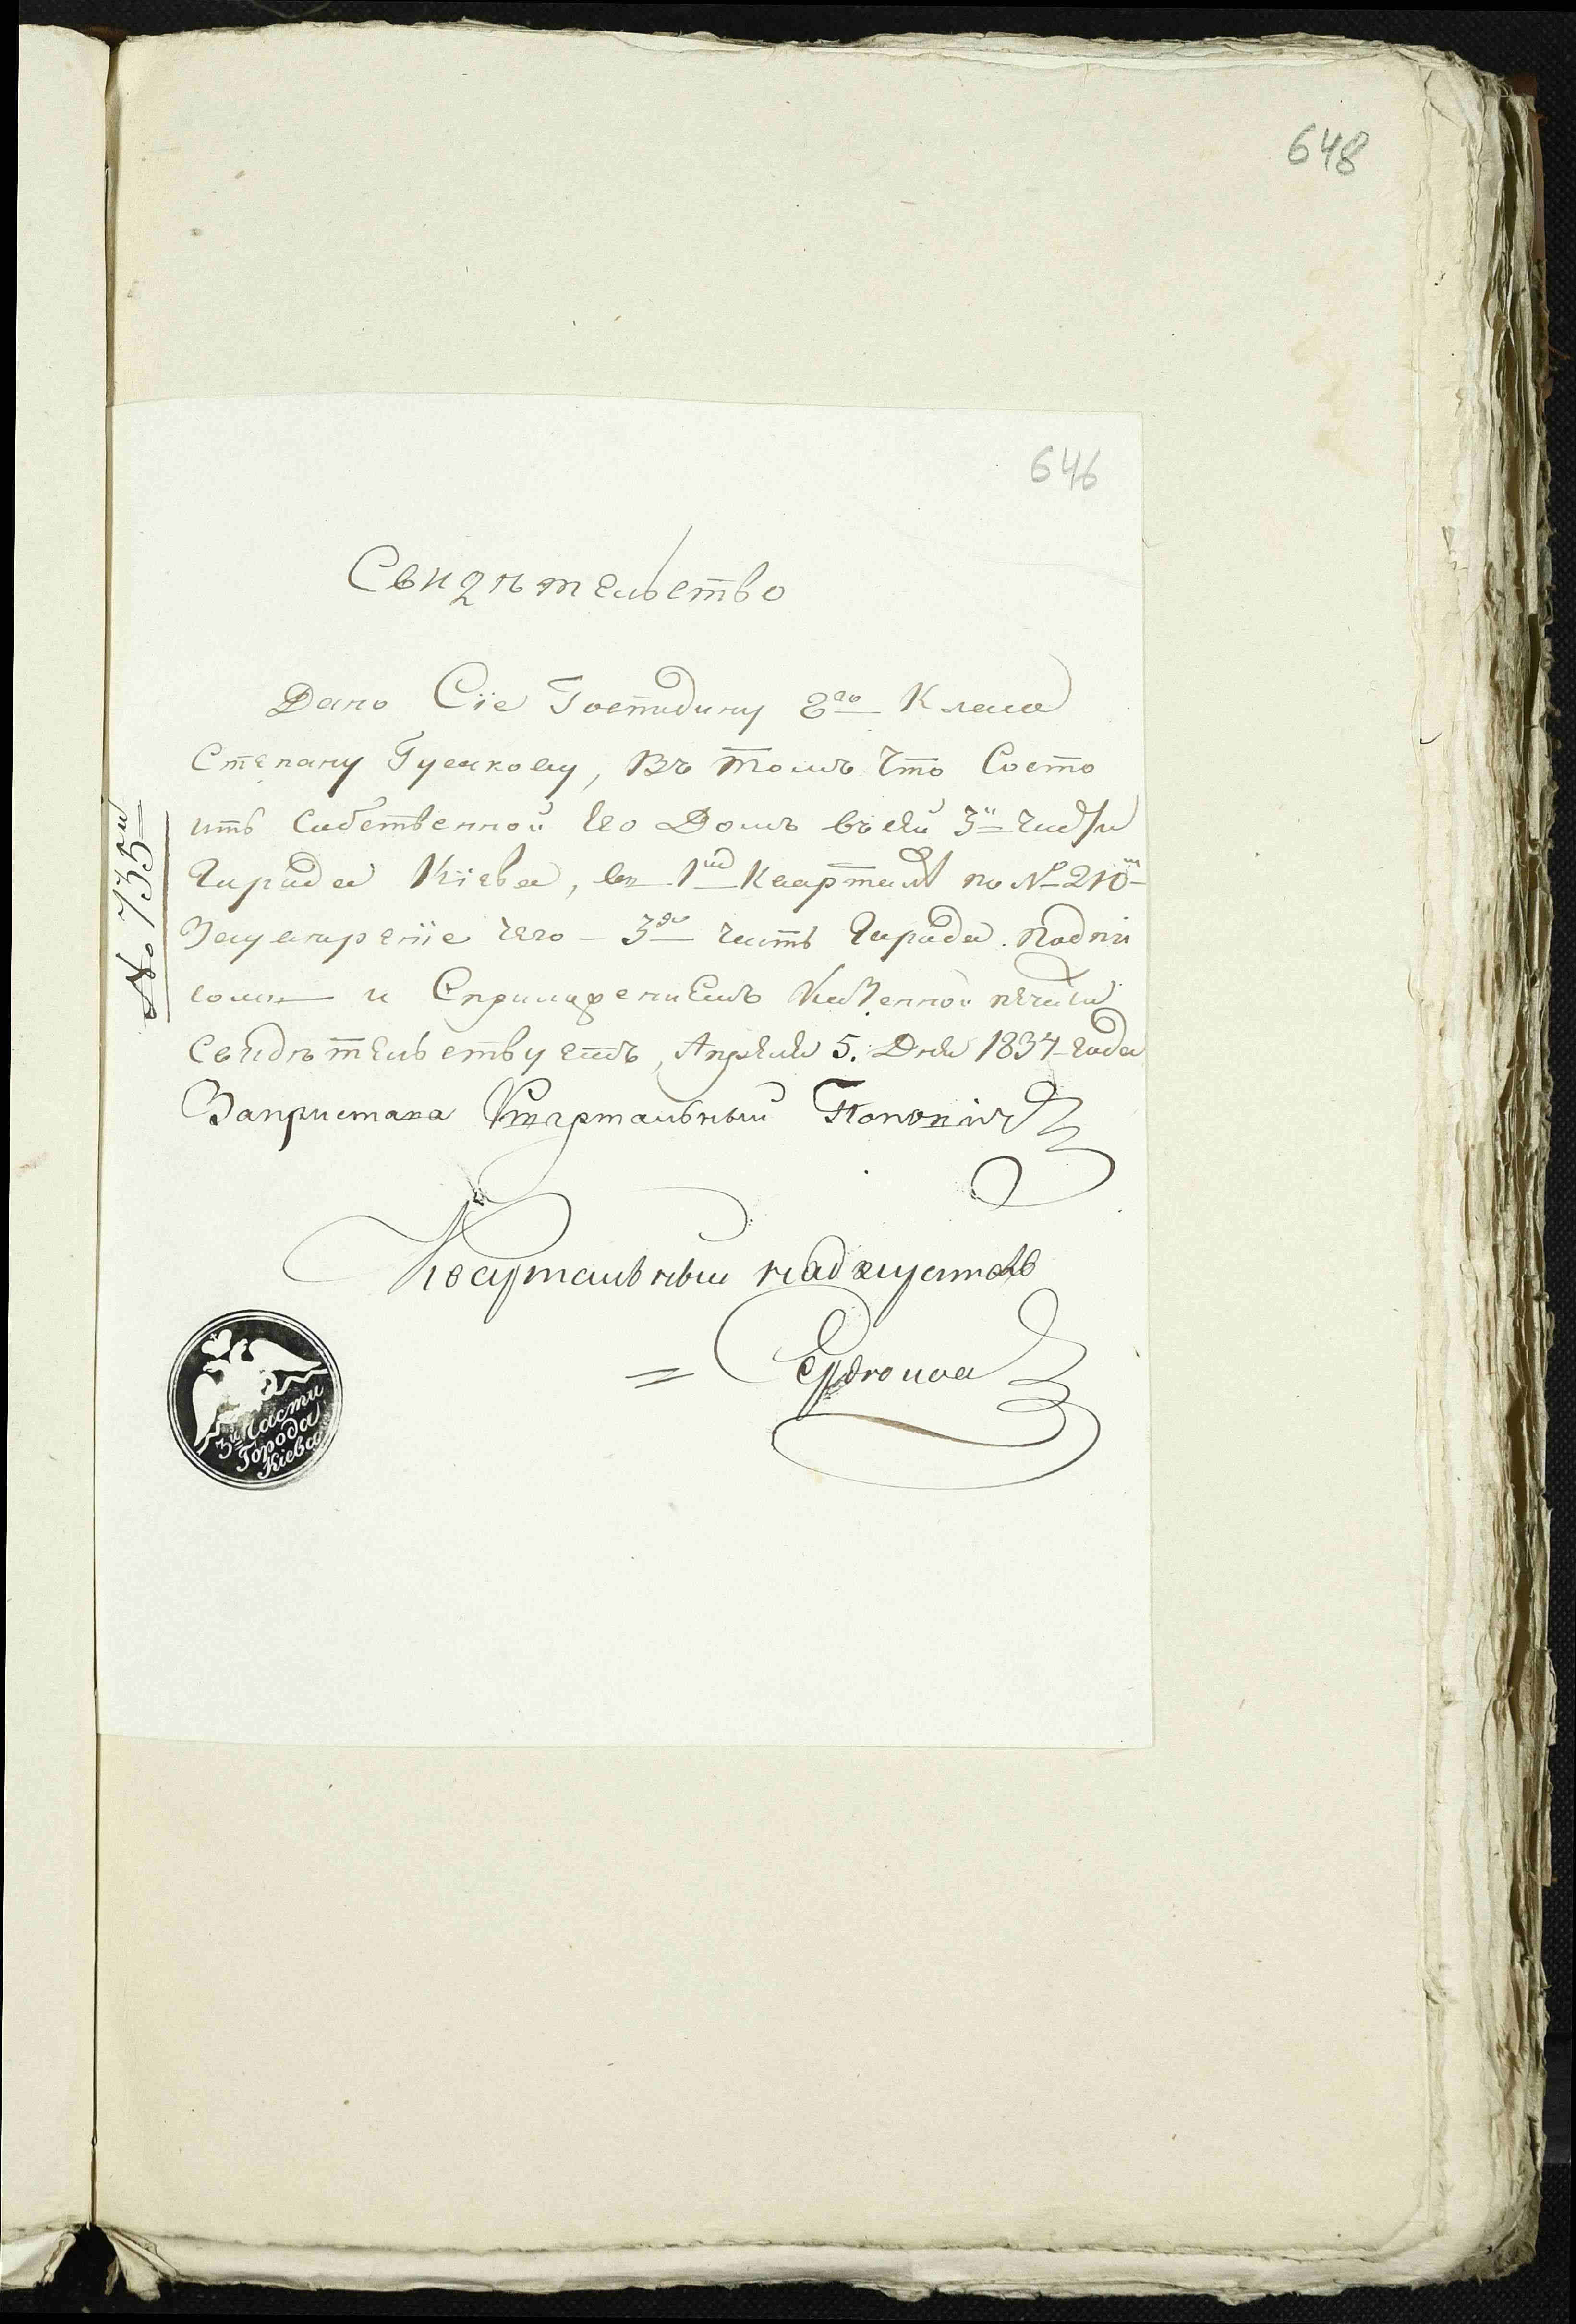 648
646
Свидѣтельство
Дано Сіе Господину 8го Класа
Степану Гусакову, Въ томъ что Состо
итъ Собственной Его Домъ въ сей 3й Части
Города Кіева, въ 1мъ Кварталѣ по № 210м
Засуиреніе чего 3дя часть Города Подпи
сомъ и Сприложениемъ Казенной печати
Свидѣтельствуетъ, Апреля 5. Дня 1834 года
Запристава Квартальный
Квартальный надзиратель
№ 735й
3й Части
Города
Кіева